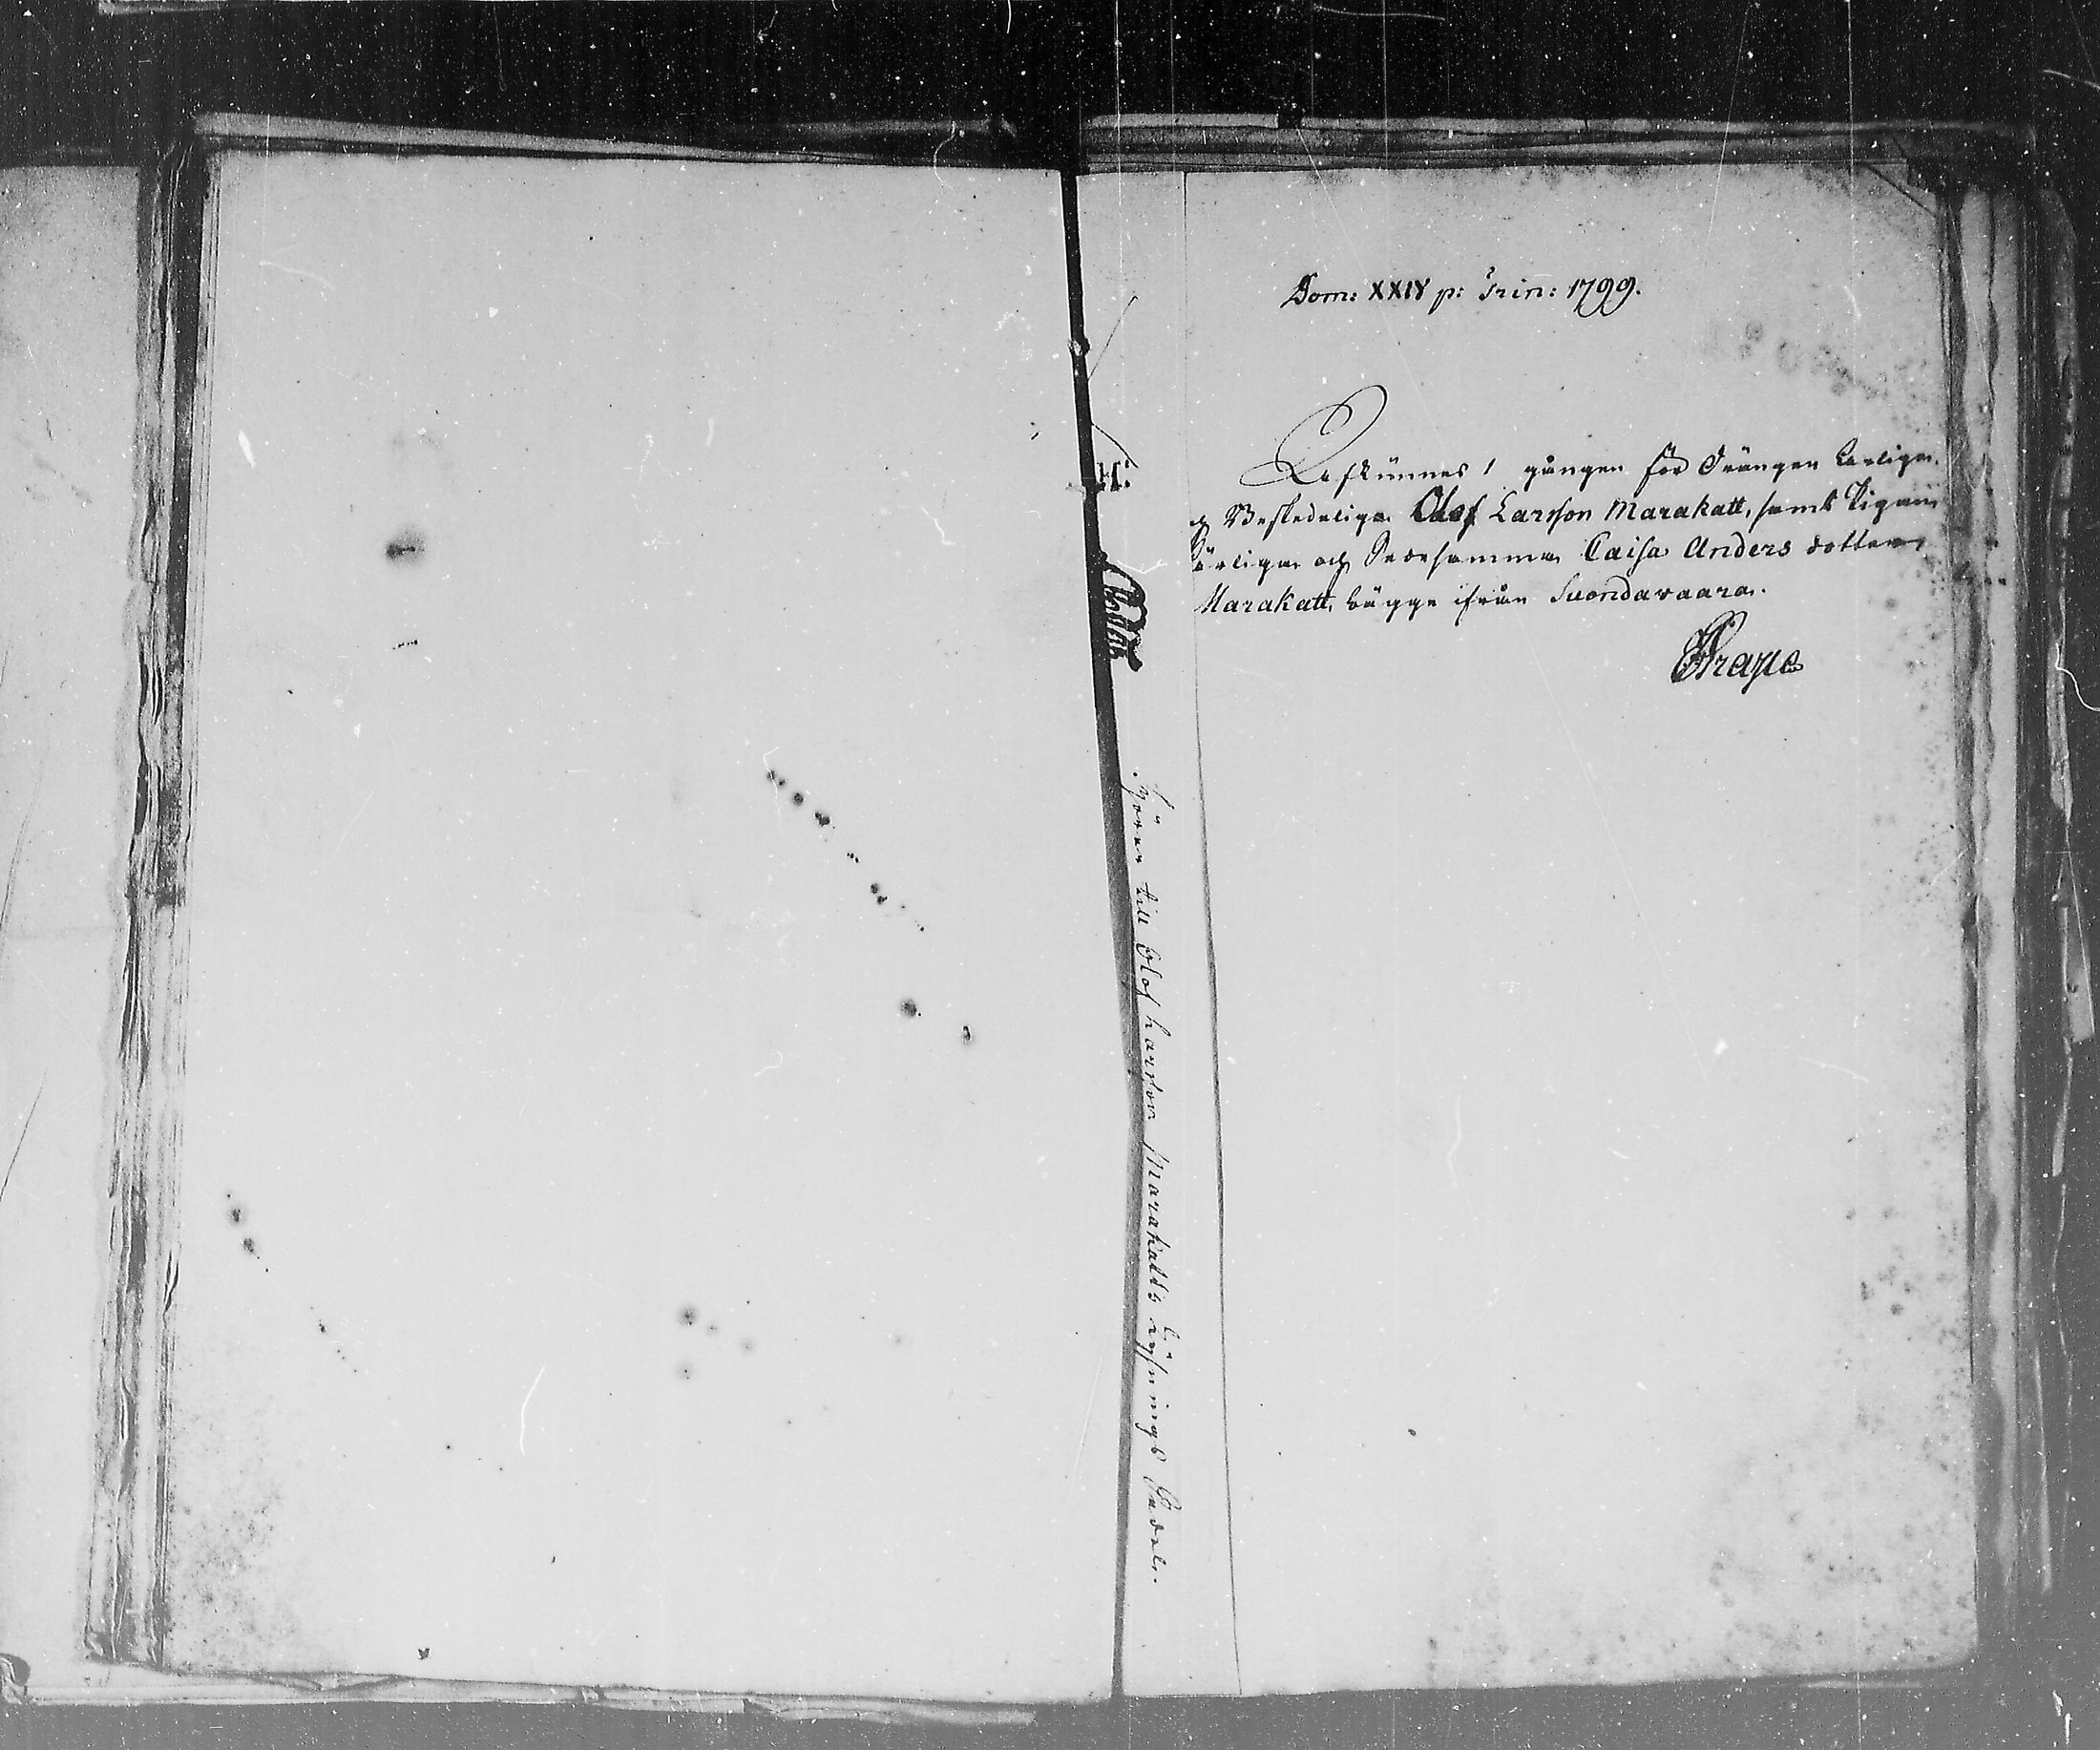 Dom: XXIV p: Trin: 1799.
Afkünnes 1 gången för Drängen Ärlige
och Beskedelige Olof Larsson Marakatt, samt Pigan
Ärliga och Dydesamma Caisa Anders dotter
Marakatt, bägge ifrån Suondavaara.
Grape
Hörer till Olof Larsson Marakatts Lysnings Sedel.